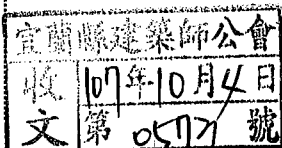 宜蘭縣建築師公會
收文
107年10月4日
第0577號